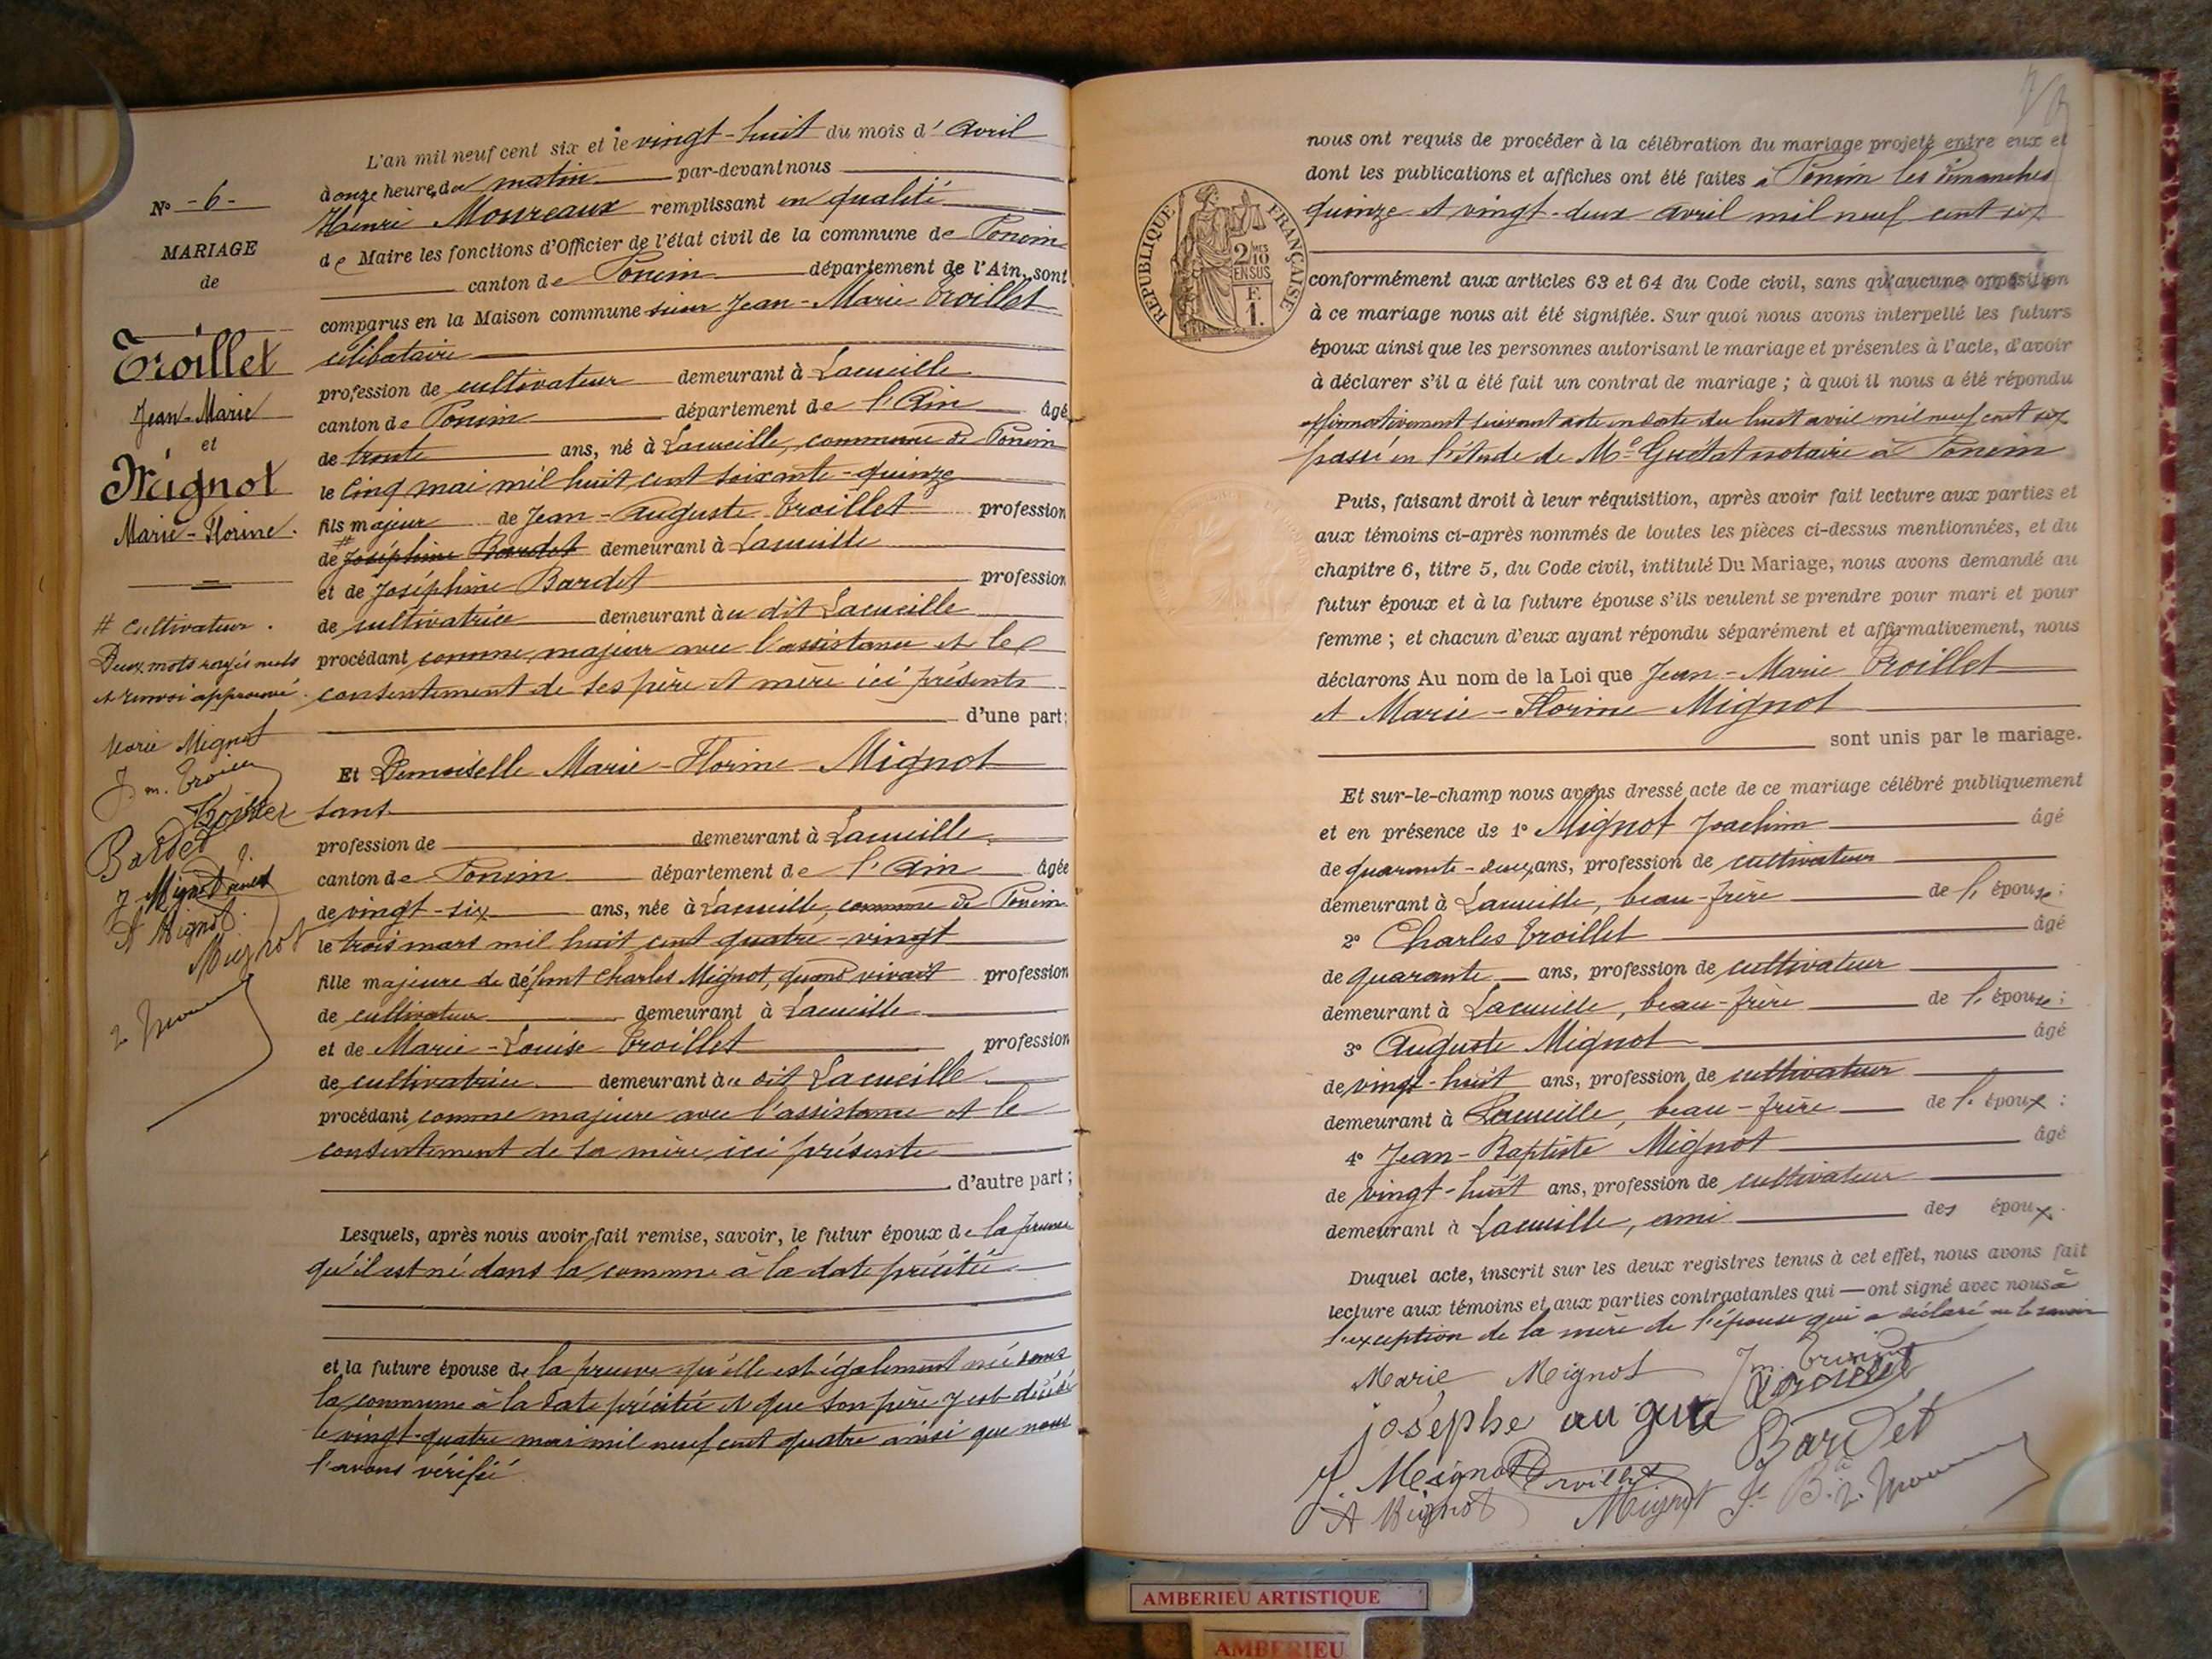 N° - 6 -
MARIAGE
de
Troillet
Jean-Marie
et
Mignot
Marie-Florine.
# Cultivateur.
Deux mots rayés nuls
et renvoi approuvé.
Marie Mignot
J. m. Troillet
Troillet
Bardet
J. Mignot
A Mignot
Mignot
L'an mil neuf cent six et le vingt-huit du mois d'avril
à onze heures du matin par-devant nous
Henri Moureaux remplissant en qualité
de Maire les fonctions d'Officier de l'état civil de la commune de Poncin
canton de Poncin département de l'Ain, sont
comparus en la Maison commune sieur Jean-Marie Troillet
célibataire
profession de cultivateur demeurant à Lacueille
canton de Poncin département de l'Ain âgé
de trente ans, né à Lacueille, commune de Poncin
le cinq mai mil huit cent soixante-quinze
fils majeur de Jean-Auguste Troillet profession
de # Joséphine Bardet demeurant à Lacueille
et de Joséphine Bardet profession
de cultivatrice demeurant au dit Lacueille
procédant comme majeur avec l'assistance et le
consentement de ses père et mère ici présents
d'une part;
Et Demoiselle Marie-Florine Mignot
sans
profession de demeurant à Lacueille
canton de Poncin département de l'Ain âgée
de vingt-six ans, née à Lacueille, commune de Poncin
le trois mars mil huit cent quatre-vingt
fille majeure de défunt Charles Mignot, quand vivait profession
de cultivateur demeurant à Lacueille
et de Marie-Louise Troillet profession
de cultivatrice demeurant au dit Lacueille
procédant comme majeure avec l'assistance et le
consentement de sa mère ici présente
d'autre part;
Lesquels, après nous avoir fait remise, savoir, le futur époux de la preuve
qu'il est né dans la commune à la date précitée
et la future épouse de la preuve qu'elle est également née dans
la commune à la date précitée et que son père y est décédé
le vingt-quatre mai mil neuf cent quatre ainsi que nous
l'avons vérifié
nous ont requis de procéder à la célébration du mariage projeté entre eux et
dont les publications et affiches ont été faites à Poncin les dimanches
quinze et vingt-deux avril mil neuf cent six
REPUBLIQUE FRANÇAISE
2/10 MES
EN SUS
F.
1.
conformément aux articles 63 et 64 du Code civil, sans qu'aucune opposition
à ce mariage nous ait été signifiée. Sur quoi nous avons interpellé les futurs
époux ainsi que les personnes autorisant le mariage et présentes à l'acte, d'avoir
à déclarer s'il a été fait un contrat de mariage ; à quoi il nous a été répondu
affirmativement suivant acte en date du huit avril mil neuf cent six
passé en l'étude de Me Guétat notaire à Poncin
Puis, faisant droit à leur réquisition, après avoir fait lecture aux parties et
aux témoins ci-après nommés de toutes les pièces ci-dessus mentionnées, et du
chapitre 6, titre 5, du Code civil, intitulé Du Mariage, nous avons demandé au
futur époux et à la future épouse s'ils veulent se prendre pour mari et pour
femme ; et chacun d'eux ayant répondu séparément et affirmativement, nous
déclarons Au nom de la Loi que Jean-Marie Troillet
et Marie-Florine Mignot
sont unis par le mariage.
Et sur-le-champ nous avons dressé acte de ce mariage célébré publiquement
et en présence de 1° Mignot Joachim âgé
de quarante-deux ans, profession de cultivateur
demeurant à Lacueille, beau-frère de l'épouse;
2° Charles Troillet âgé
de quarante ans, profession de cultivateur
demeurant à Lacueille, beau-frère de l'épouse;
3° Auguste Mignot âgé
de vingt-huit ans, profession de cultivateur
demeurant à Lacueille, beau-frère de l'époux :
4° Jean-Baptiste Mignot âgé
de vingt-huit ans, profession de cultivateur
demeurant à Lacueille, ami des époux.
Duquel acte, inscrit sur les deux registres tenus à cet effet, nous avons fait
lecture aux témoins et aux parties contractantes qui — ont signé avec nous à
l'exception de la mère de l'épouse qui a déclaré ne le savoir
Marie Mignot J. m. Troillet
josephe au gute Troillet
Bardet
J. Mignot Troillet
A Mignot Mignot J. B.
AMBERIEU ARTISTIQUE
AMBERIEU